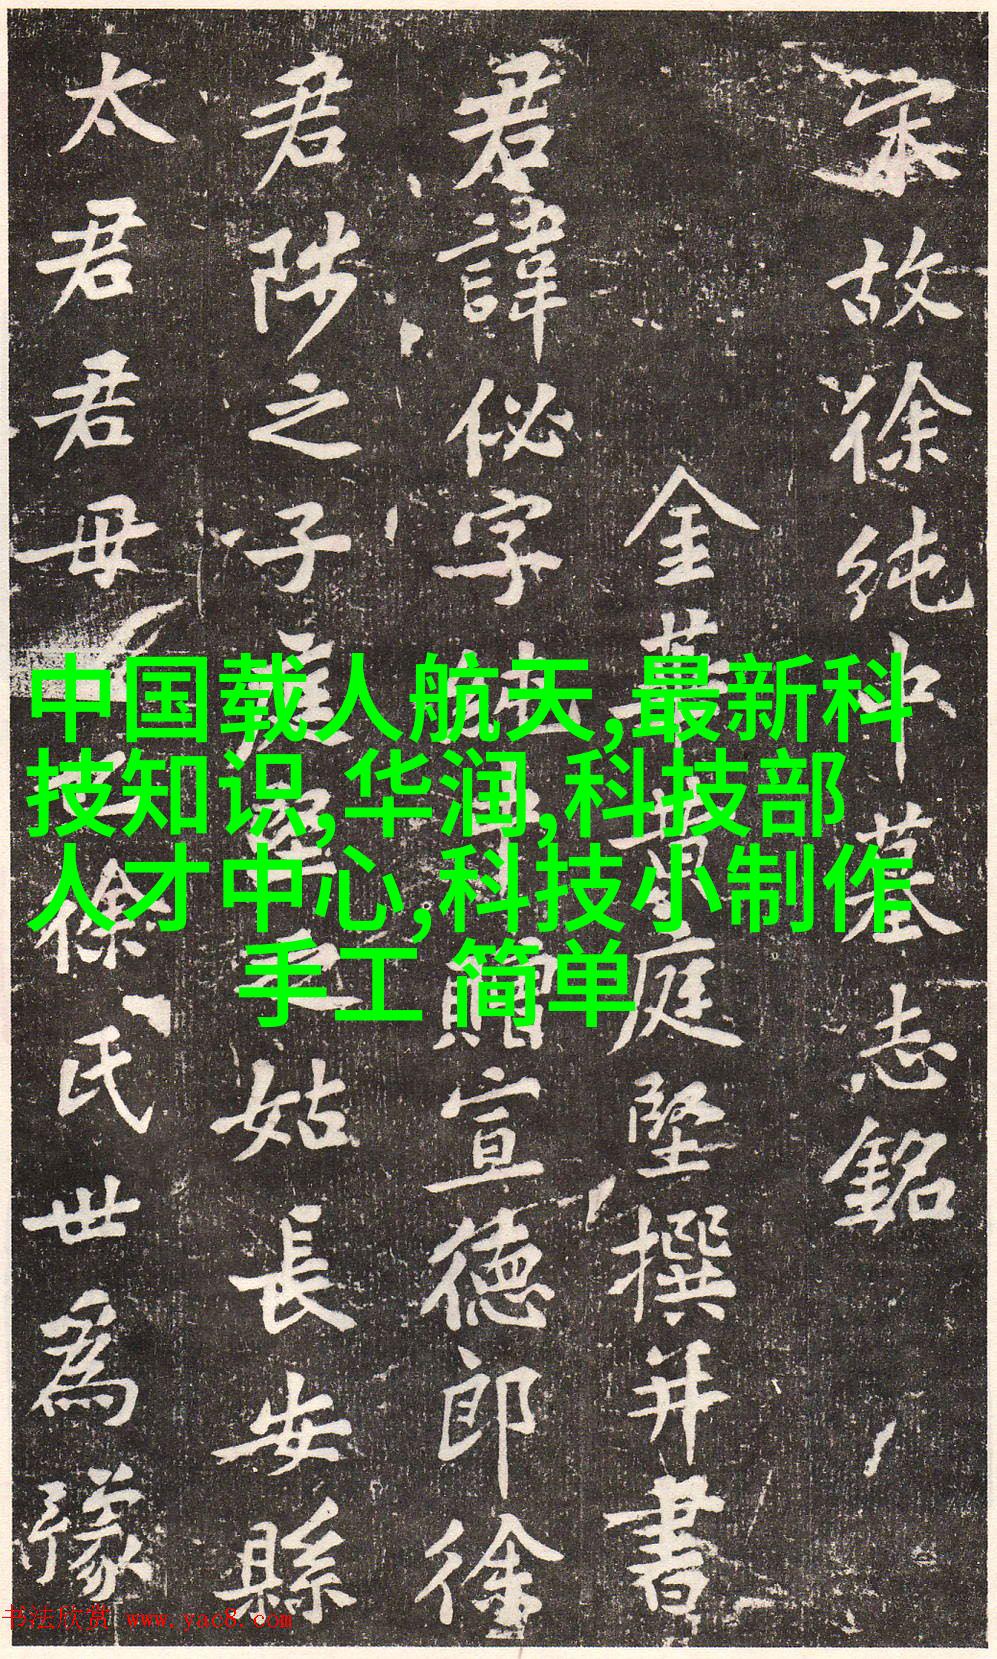 宋故徐纯中墓志銘
金華黄庭堅撰并書
君諱佖字
贈宣德郎徐
君陟之子
之姑長安縣
太君君母
徐氏世爲豫
中国载人航天,最新科
技知识,华润,科技部
人才中心,科技小制作
手工 简单
书法欣赏 www.yac8.com